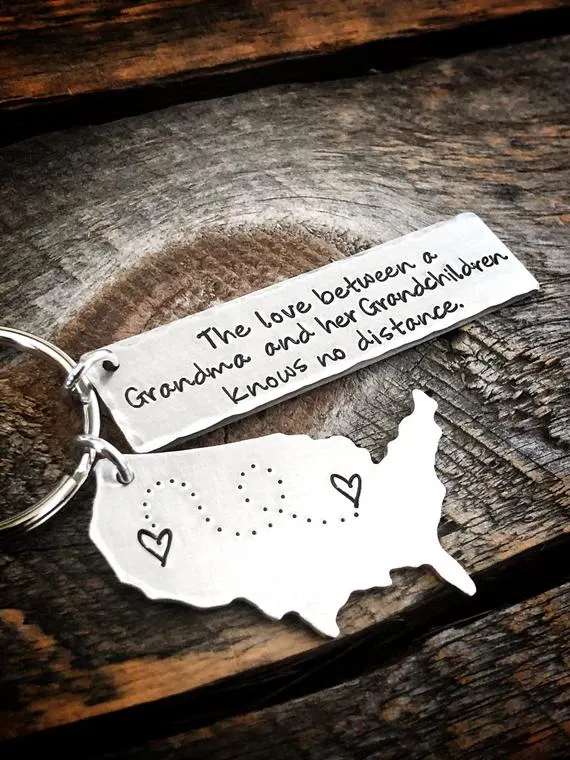 The love between a
Grandma and her Grandchildren
knows no distance.